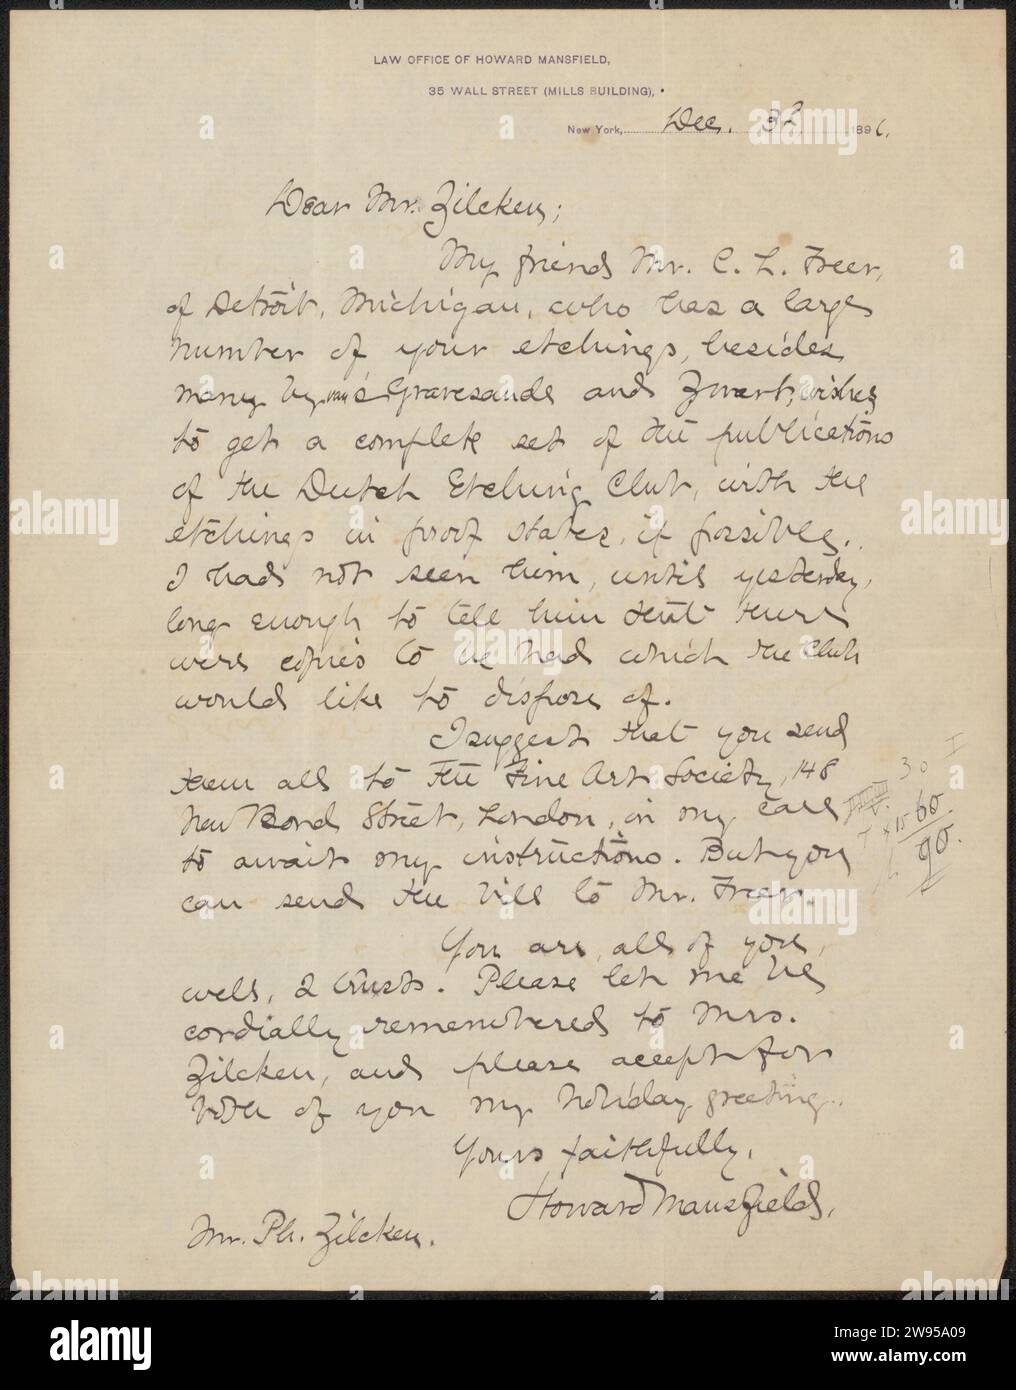 LAW OFFICE OF HOWARD MANSFIELD,
35 WALL STREET (MILLS BUILDING),
New York, Dec. 1896.
Dear Mr. Zilcken;
My friend Mr. C. L. Freer,
of Detroit, Michigan, who has a large
number of your etchings, besides
many by Gravesande and Zwart, wishes
to get a complete set of the publications
of the Dutch Etching Club, with the
etchings in proof states, if possible.
I had not seen him, until yesterday,
long enough to tell him that there
were copies to be had which the Club
would like to dispose of.
I suggest that you send
them all to The Fine Art Society, 148
New Bond Street, London, in my care
to await my instructions. But you
can send the bill to Mr. Freer.
You are, all of you,
well, I trust. Please let me be
cordially remembered to Mrs.
Zilcken, and please accept for
both of you my holiday greeting.
Yours faithfully,
Howard Mansfield.
Mr. Ph. Zilcken.
30
x 15 60
90.
alamy
Image ID: 2W95A09
www.alamy.com